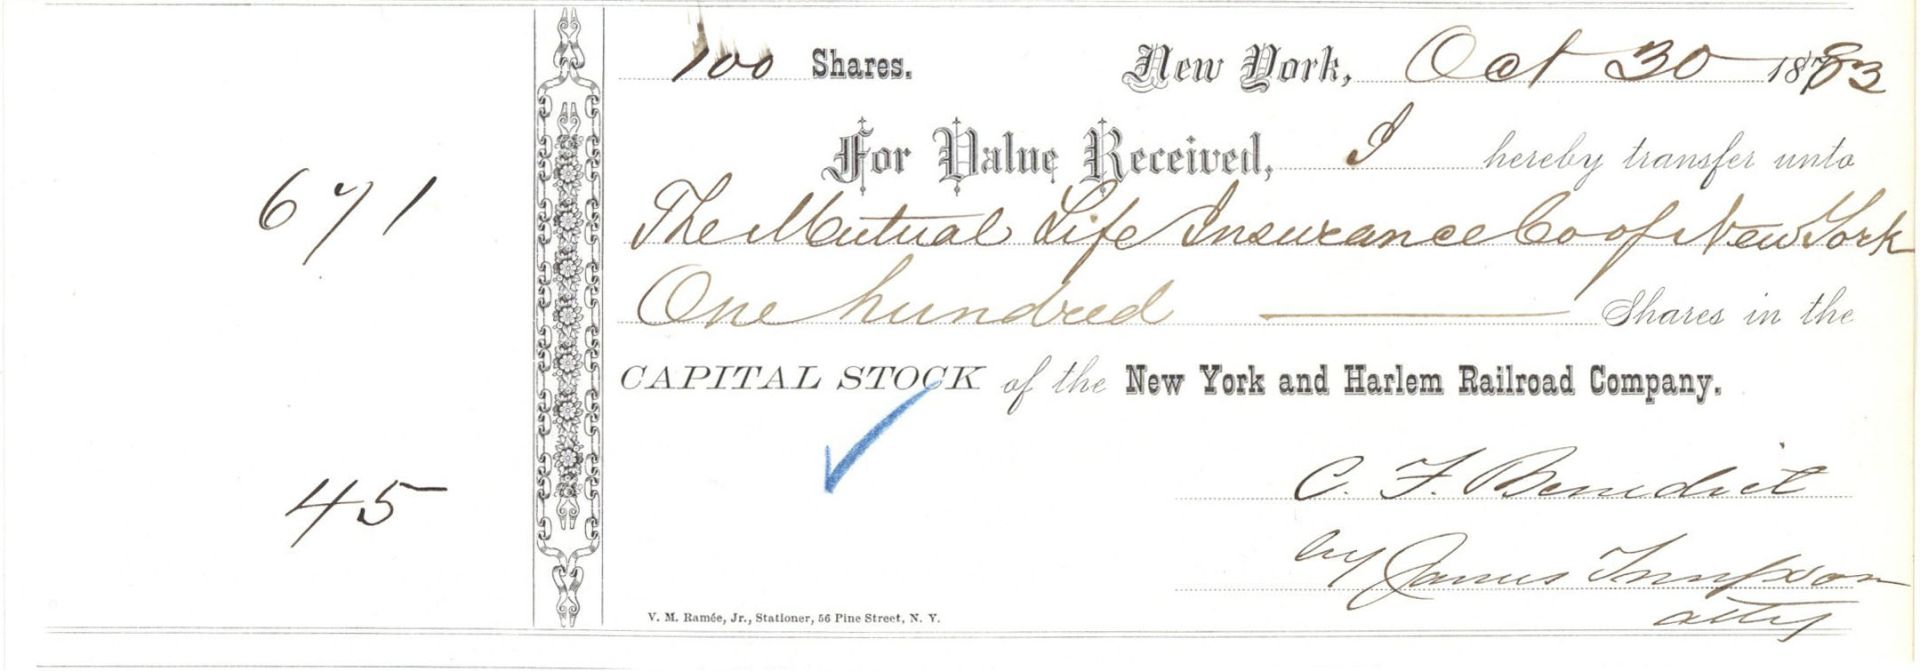 100 Shares. New York, Oct 30 1883
For Value Received, I hereby transfer unto
671
The Mutual Life Insurance Co of New York
One hundred Shares in the
CAPITAL STOCK of the New York and Harlem Railroad Company.
C. F. Benedict
45
by James
atty
V. M. Ramée, Jr., Stationer, 56 Pine Street, N. Y.